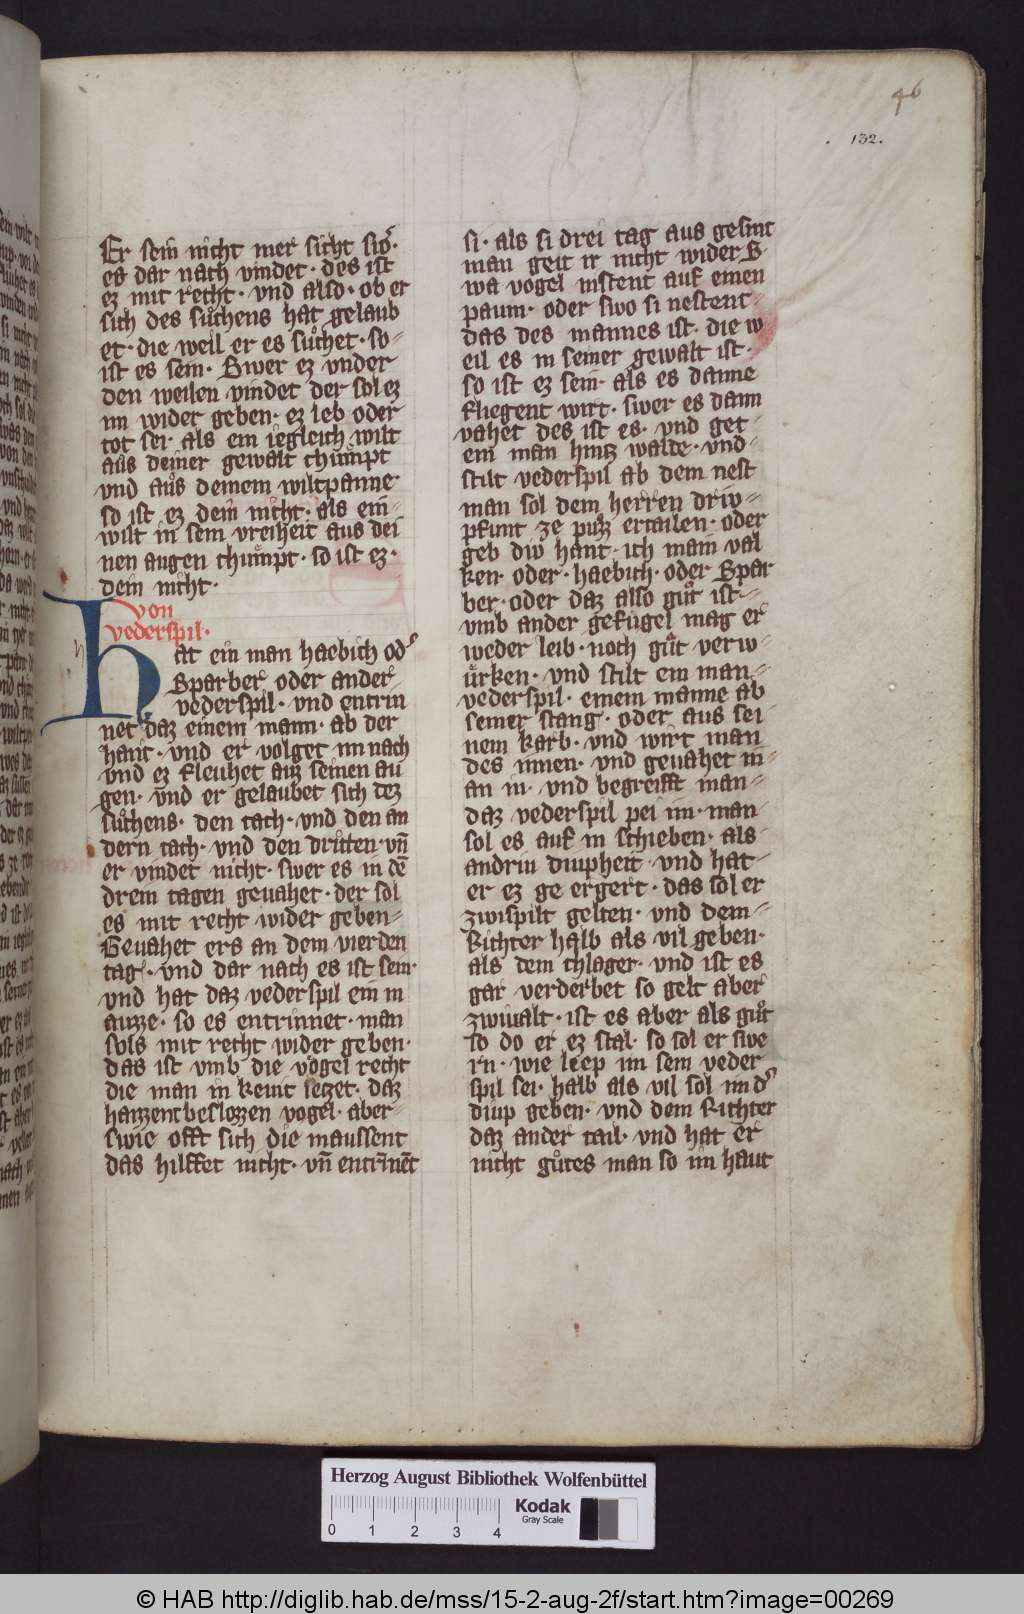 46
. 132.
Er sein nicht mer sicht swͦ·
es dar nach vindet· des ist
ez mit recht· vnd also· ob er
sich des sůchens hat gelaub
et· die weil er es sůchet· so-
ist es sein· Swer ez vnder
den weilen vindet der sol ez
im wider geben· ez leb oder
tot sei· als ein iegleich wilt
aůs deiner gewalt chůmpt
vnd aůs deinem wiltpanne·
so ist ez dein nicht· als ein-
wilt in sein vreiheit aus dei
nen augen chůmpt· so ist ez·
dein nicht·
von
vederspil·
Hat ein man haebich od᾽
Sparber oder ander
vederspil· vnd entrin
net daz einem mann· ab der
hant· vnd er volget im nach
vnd ez fleuhet auz seinen au
gen· vnd er gelaubet sich dez
sůchens· den tach· vnd den an
dern tach· vnd den dritten· vn̄
er vindet nicht· swer es in dē
drein tagen geuahet· der sol
es mit recht wider geben=
Geuahet ers an dem vierden
tag· vnd dar nach es ist sein·
vnd hat daz vederspil ein in
auzze· so es entrinnet· man
sols mit recht wider geben·
das ist vmb die vögel recht
die man in keint setzet· daz
haizzent beslozzen vogel· aber=
swie offt sich die maussent
das hilffet nicht· vn̄ entrīnēt
si· als si drei tag aus gesint
man geit ir nicht wider S·
wa vogel nistent auf einen
paum· oder swo si nestent=
das des mannes ist· die w
eil es in seiner gewalt ist·
so ist ez sein· als es danne
fliegent wirt· swer es dann
vahet des ist es· vnd get=
ein man hintz walde· vnd=
stilt vederspil ab dem nest
man sol dem herren driv=
pfunt ze puzz ertailen· oder
geb div hant· ich main val
ken· oder· haebich· oder Spar
ber· oder daz also gůt ist=
vmb ander gefugel mag er
weder leib· noch gůt verw=
ürken· vnd stilt ein man=
vederspil· einem manne ab
seiner stang· oder aus sei
nem karb· vnd wirt man
des innen· vnd geuahet in=
an in· vnd begreifft man=
daz vederspil pei im· man
sol es auf in schieben· als=
andriu diupheit· vnd hat=
er ez ge ergert· das sol er
zwispilt gelten· vnd dem=
Richter halb als vil geben·
als dem chlager· vnd ist es
gar verderbet so gelt aber
zwiualt· ist es aber als gůt
so do er ez stal· so sol er swe
rn· wie leep im sein veder
spil sei· halb als vil sol im d᾽
diup geben· vnd dem Richter
daz ander tail· vnd hat er
nicht gůtes man so im haut
Herzog August Bibliothek Wolfenbüttel
0 1 2 3 4
Kodak
Gray Scale
© HAB http://diglib.hab.de/mss/15-2-aug-2f/start.htm?image=00269